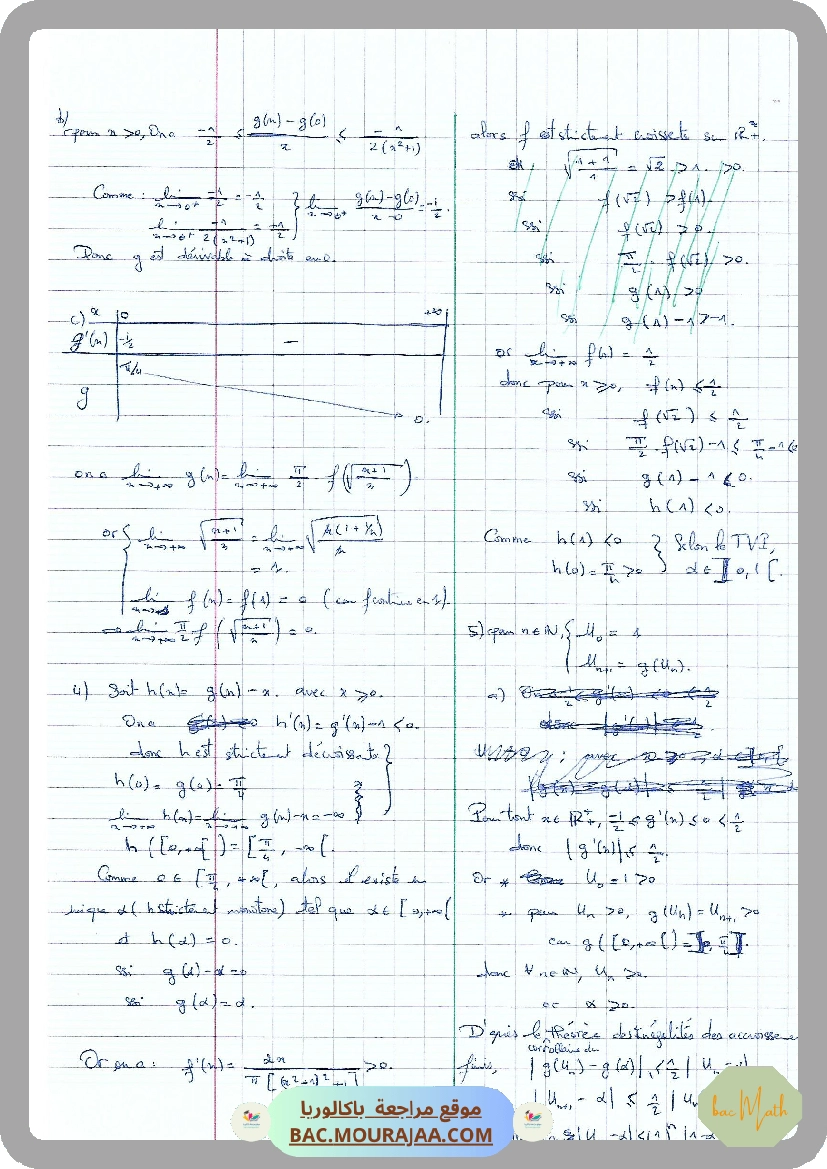 b)
pour x >0, On a -1/2 ≤ (g(x) - g(0))/x ≤ -1/(2(x²+1))
Comme : lim x→0+ -1/2 = -1/2
lim x→0+ -1/(2(x²+1)) = -1/2 } lim x→0+ (g(x)-g(0))/(x-0) = -1/2.
Donc g est dérivable à droite en 0.
c) x 0 +∞
g'(x) -1/2 −
π/4
g
0.
on a lim x→+∞ g(x) = lim x→+∞ π/2 f(√((x+1)/x)).
or { lim x→+∞ √((x+1)/x) = lim x→+∞ √(x(1+1/x)/x)
= 1.
lim f(x) = f(1) = 0 (car f continue en 1).
⇒ lim x→+∞ π/2 f(√((x+1)/x)) = 0.
4) Soit h(x) = g(x) - x. avec x ≥ 0.
On a h'(x) = g'(x) - 1 < 0.
donc h est strictement décroissante
h(0) = g(0) = π/4
lim x→+∞ h(x) = lim x→+∞ g(x) - x = -∞
h([0,+∞[) = [π/4, -∞[.
Comme 0 ∈ [π/4, +∞[, alors il existe un
unique α (h strictement monotone) tel que α ∈ [0,+∞[
et h(α) = 0.
ssi g(α) - α = 0
ssi g(α) = α.
Or on a : f'(x) = 2x/(π[(x²+1)²+1]) > 0.
alors f est strictement croissante sur ℝ*+.
√((1+1)/1) = √2 > 1. > 0.
ssi f(√2) > f(1).
ssi f(√2) > 0.
ssi π/2 . f(√2) > 0.
ssi g(1) > 0
ssi g(1) - 1 > -1.
or lim x→+∞ f(x) = 1/2
donc pour x ≥ 0, f(x) ≤ 1/2
ssi f(√2) ≤ 1/2
ssi π/2 . f(√2) - 1 ≤ π/4 - 1 <
ssi g(1) - 1 < 0.
ssi h(1) < 0.
Comme h(1) < 0 } Selon le TVI,
h(0) = π/4 > 0 α ∈ ]0,1[.
5) pour n ∈ ℕ, { U0 = 1
Un+1 = g(Un).
a)
Pour tout x ∈ ℝ+, -1/2 ≤ g'(x) ≤ 0 < 1/2
donc |g'(x)| ≤ 1/2.
Or * U0 = 1 > 0
* pour Un > 0, g(Un) = Un+1 > 0
car g([0,+∞[) = ]0, π/4].
donc ∀ n ∈ ℕ, Un > 0.
or α > 0.
D'après le théorème des inégalités des accroisse
corollaire du
finis, |g(Un) - g(α)| ≤ 1/2 |Un - α|
|Un+1 - α| ≤ 1/2 |U
موقع مراجعة باكالوريا
BAC.MOURAJAA.COM
bac Math